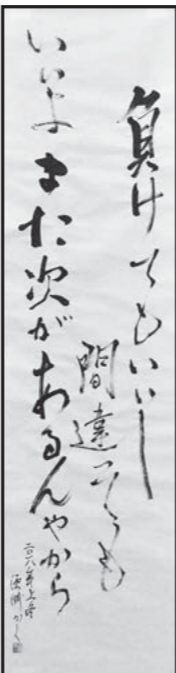 負けてもいいし
間違っても
いいよまた次があるんやから
二〇一八年上半